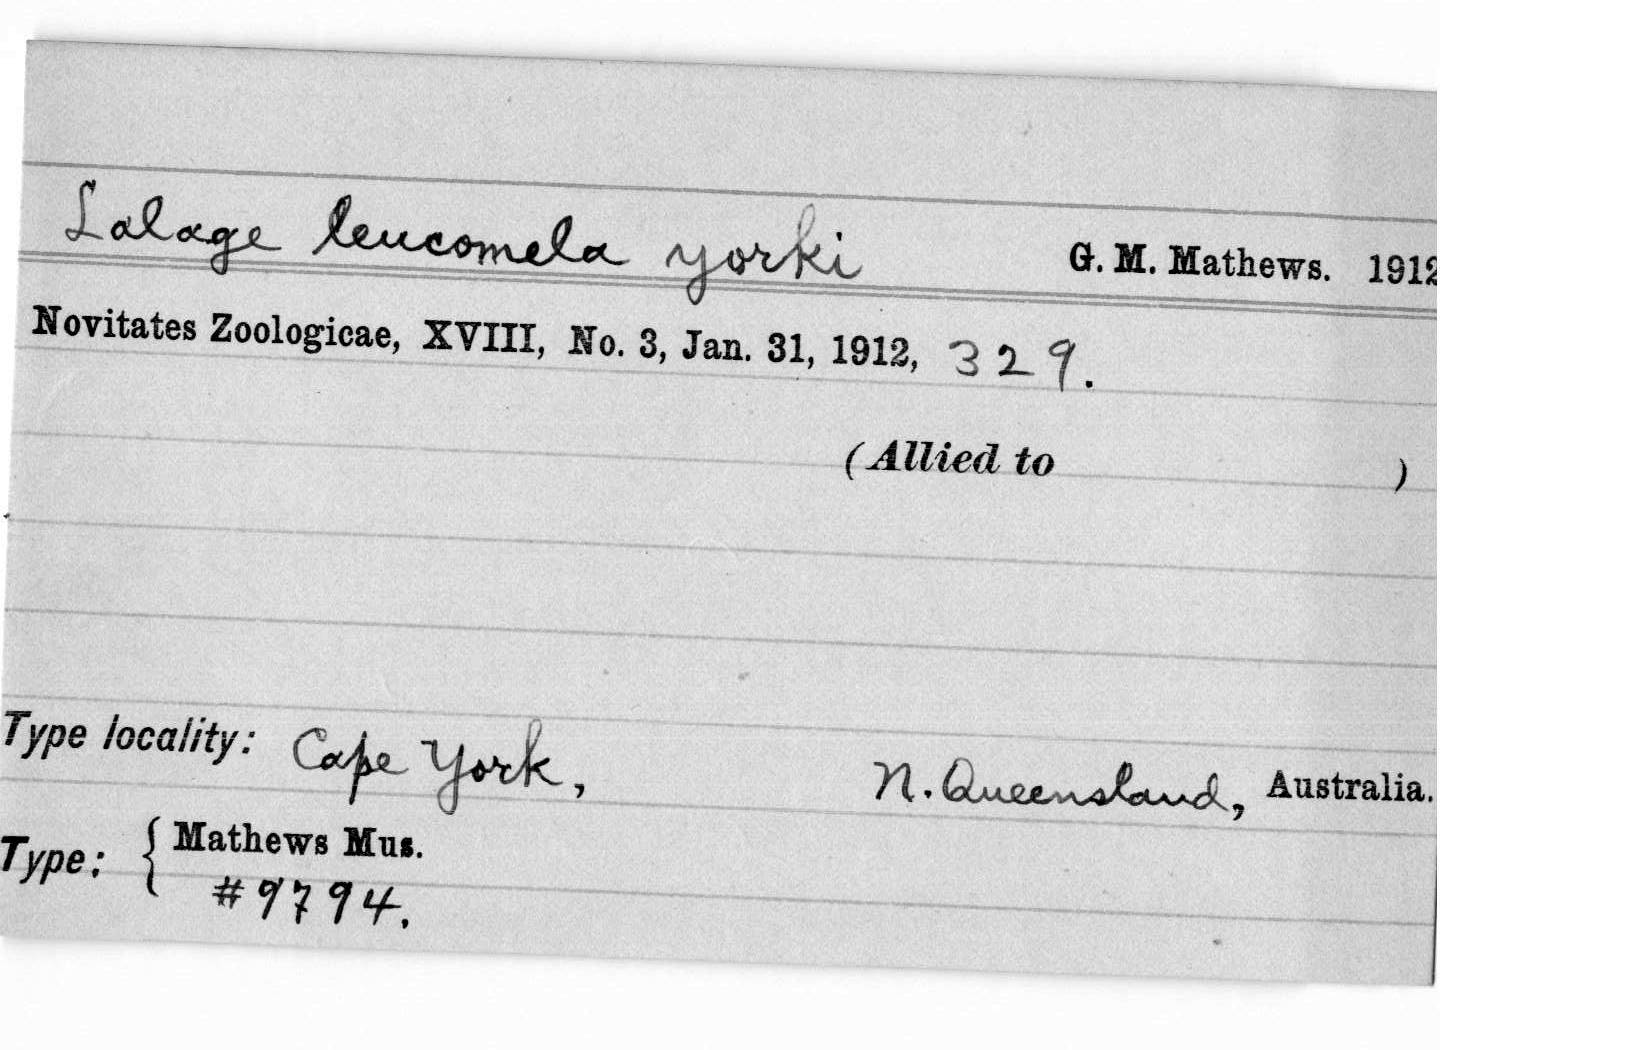 Lalage leucomela yorki G. M. Mathews. 1912
Novitates Zoologicae, XVIII, No. 3, Jan. 31, 1912, 329.
(Allied to )
Type locality: Cape York, N. Queensland, Australia.
Type: { Mathews Mus.
#9794.